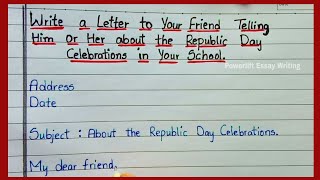 Write a Letter to Your Friend Telling
Him or Her about the Republic Day
Celebrations in Your School.
Powerlift Essay Writing
Address
Date
Subject : About the Republic Day Celebrations.
My dear friend,